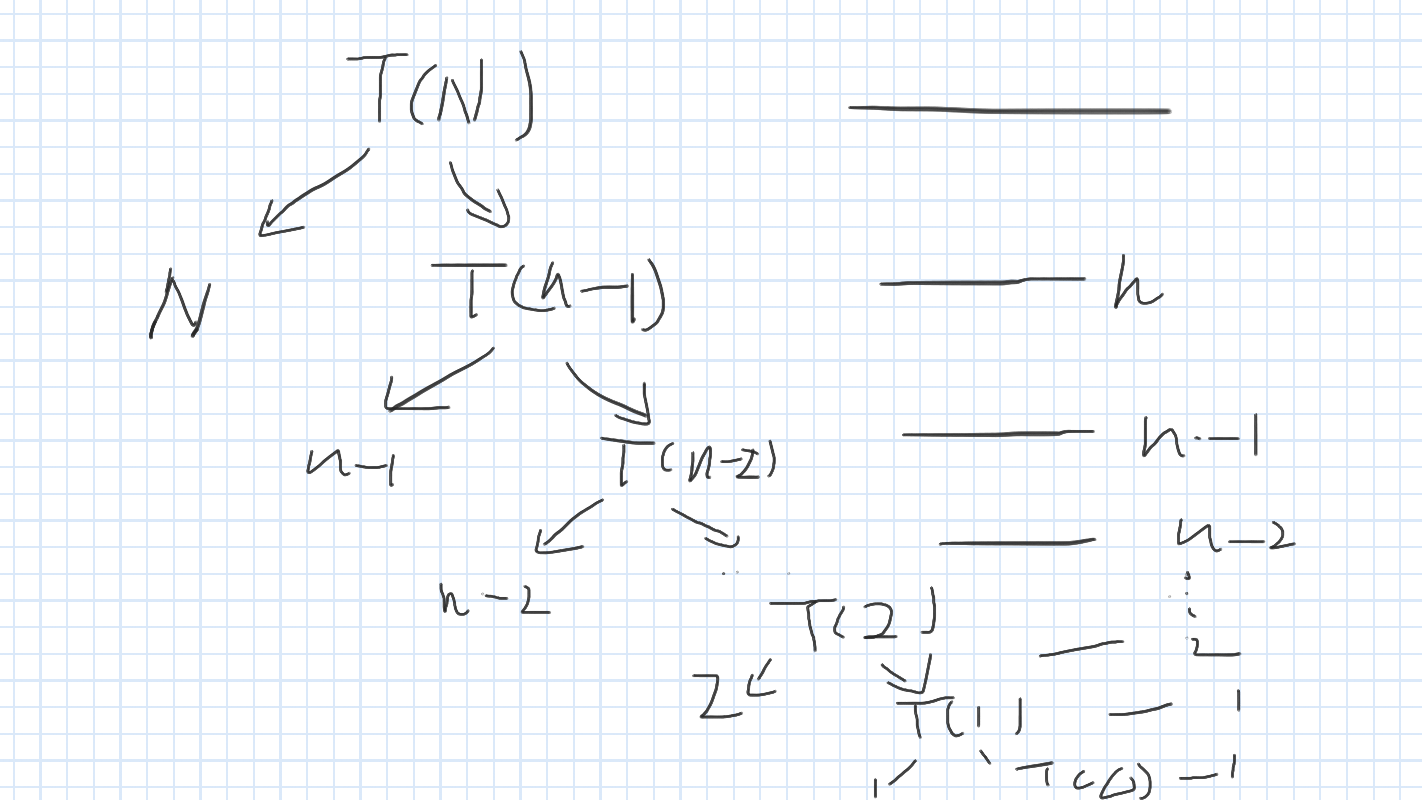 T(N)
N T(n-1) n
n-1 T(n-2) n-1
n-2
n-2
T(2) 2
2
T(1) 1
1 T(0) 1